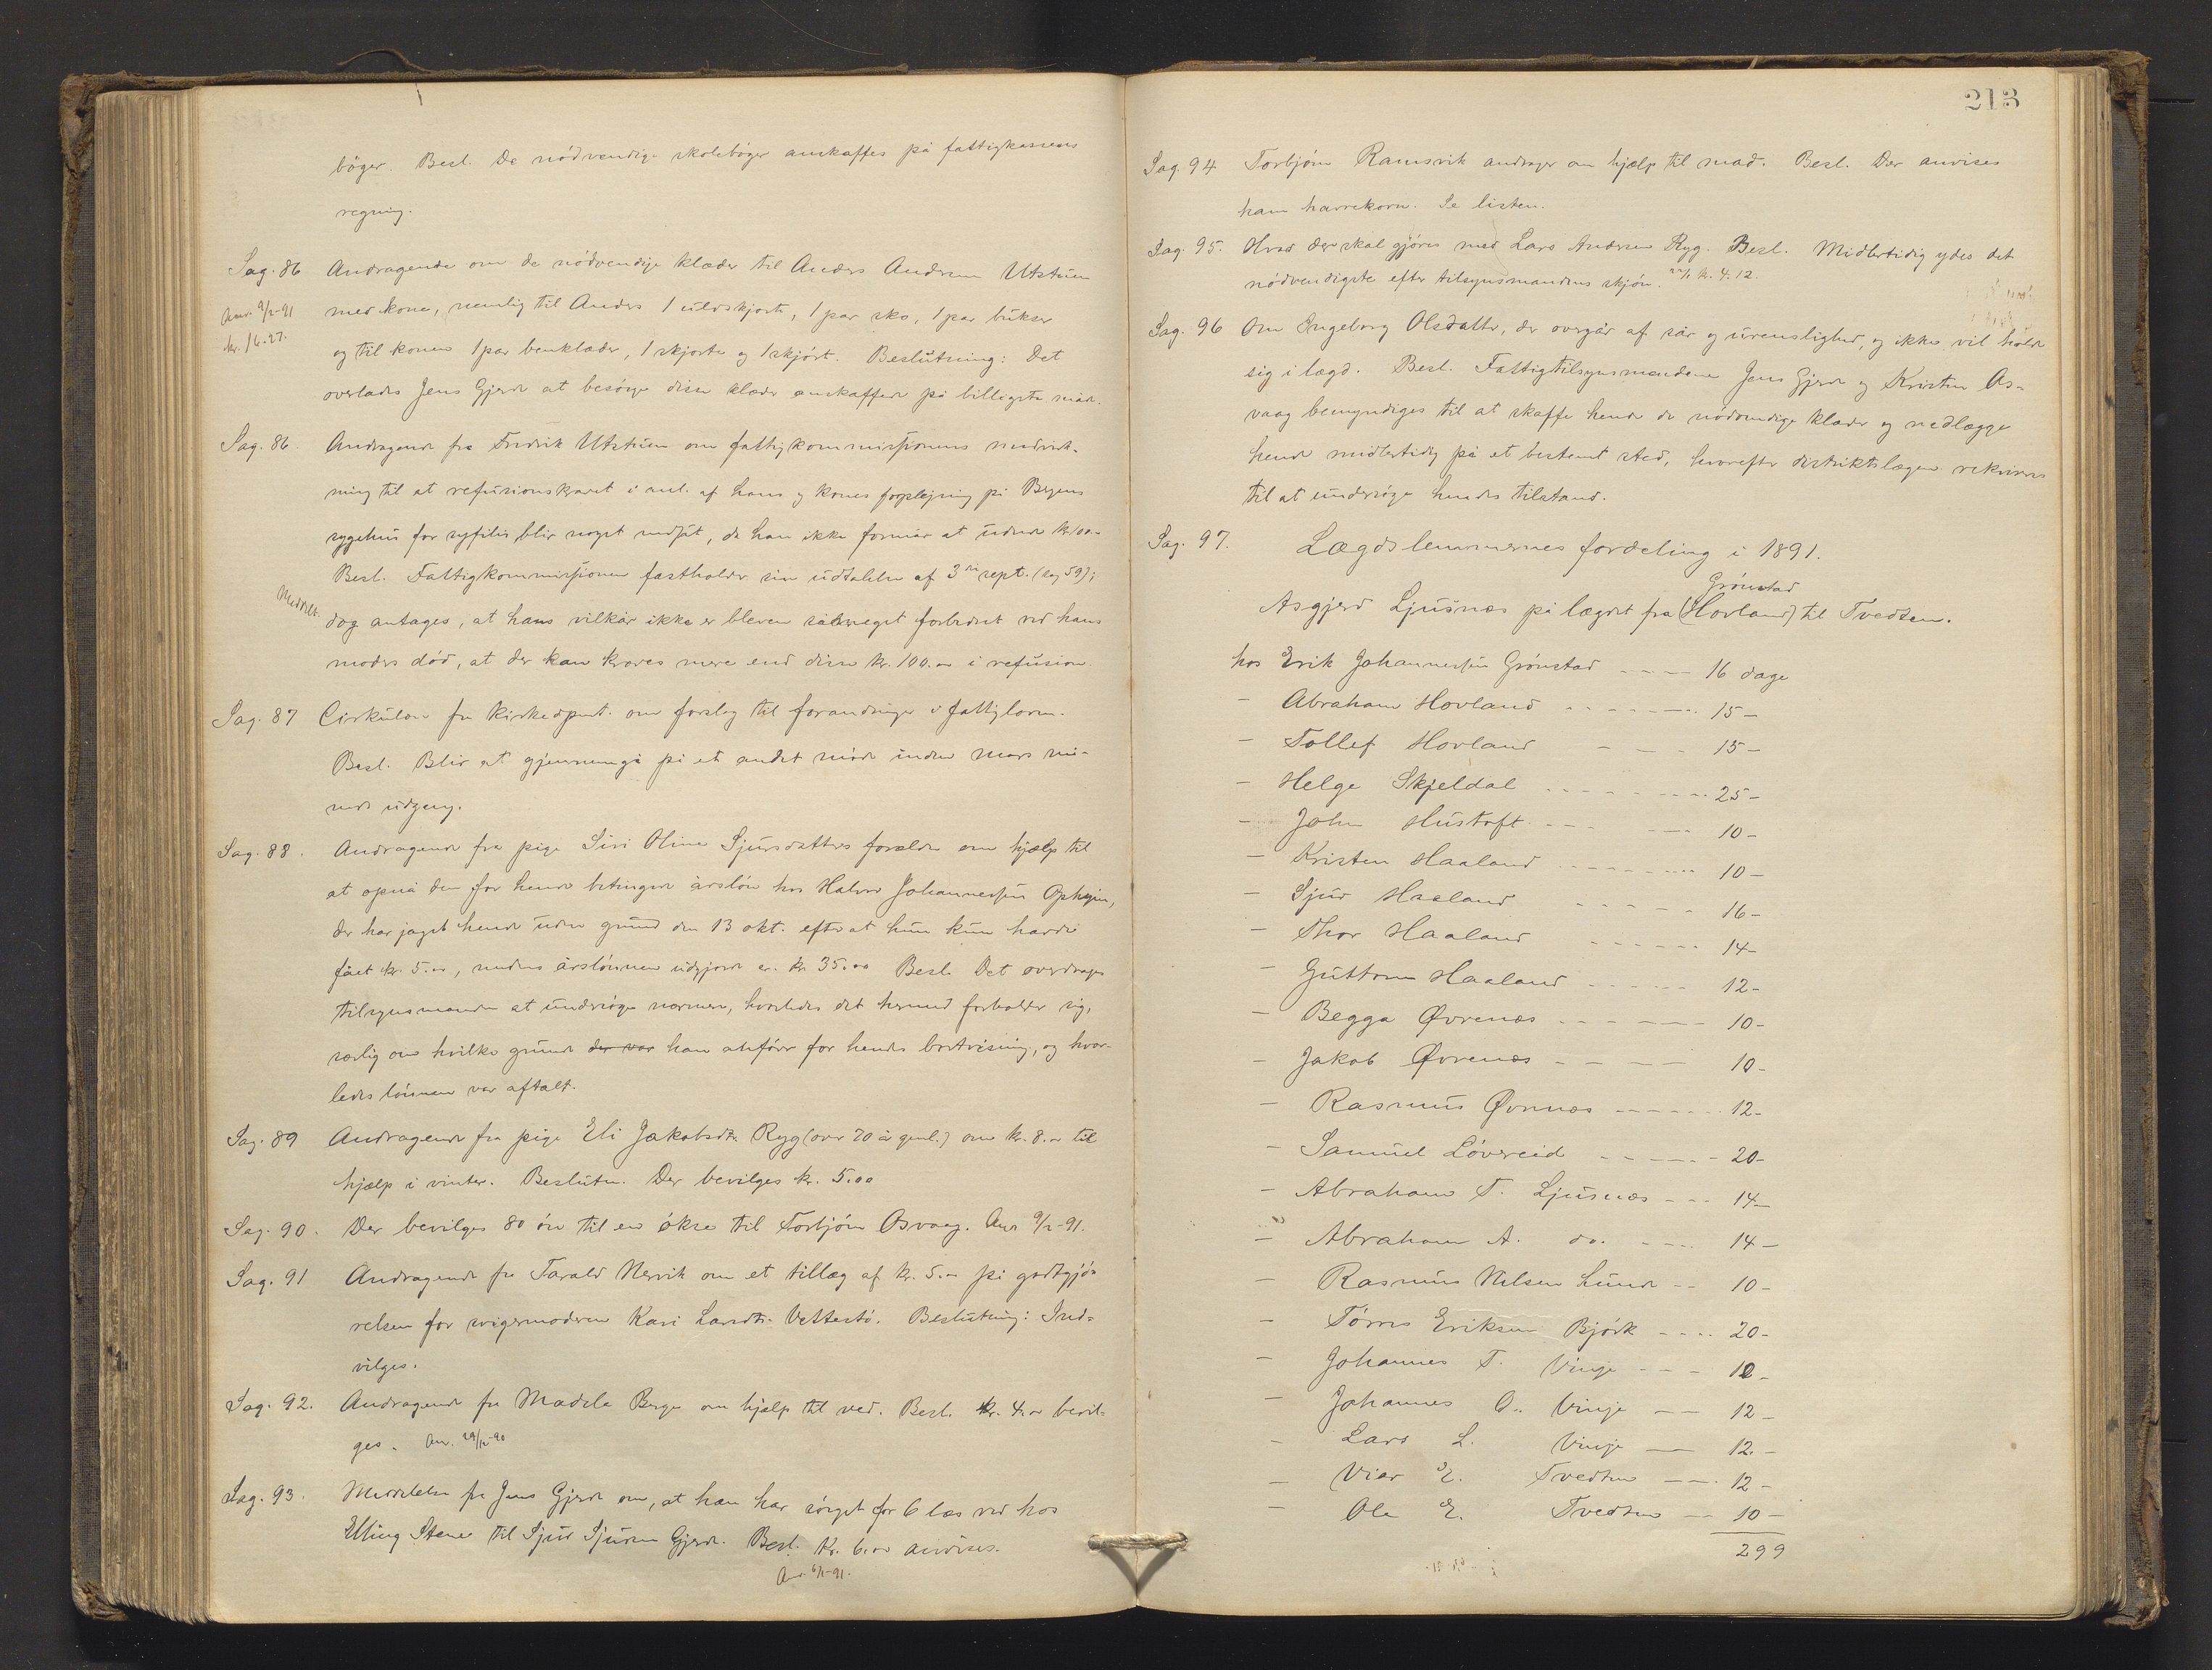 bøger. Besl. De nødvendige skolebøger anskaffes på fattigkassens
regning.
Sag. 86 Andragende om de nødvendige klæder til Anders Andersen Utstuen
Anv. 9/2-91 med kone, nemlig til Anders 1 uldskjorte, 1 par sko, 1 par bukser
kr. 16.27. og til konen 1 par benklæder, 1 skjorte og 1 skjørt. Beslutning: Det
overlades Jens Gjerde at besørge disse klæder anskaffede på billigste måde.
Sag. 86 Andragende fra Fredrik Utstuen om fattigkommissionens medvirk-
ning til at refusionskravet i anl. af hans og kones forplejning på Bergens
sygehus for syfilis blir noget nedsat, da han ikke formår at udrede kr. 100.-
Besl. Fattigkommissionen fastholder sin udtalelse af 3die sept. (sag 59);
Meddelt. dog antages, at hans vilkår ikke er bleven såmeget forbedret ved hans
moders død, at der kan kræves mere end disse kr. 100.00 i refusion.
Sag. 87 Cirkulære fra kirkedpmt. om forslag til forandringer i fattigloven.
Besl. Blir at gjennemgå på et andet møde inden mars må-
neds udgang.
Sag. 88. Andragende fra pige Siri Oline Sjursdatters forældre om hjælp til
at opnå den for hende betingede årsløn hos Halvor Johannessen Opheim,
der har jaget hende uden grund den 13 okt. efter at hun kun havde
fået kr. 5.00, medens årslønnen udgjorde er. kr. 35.00 Besl. Det overdrages
tilsynsmanden at undersøge nærmere, hvorledes det hermed forholder sig,
særlig om hvilke grunde der var han anfører for hendes bortvisning, og hvor-
ledes lønnen var aftalt.
Sag. 89 Andragende fra pige Eli Jakobsdtr. Ryg (over 70 år gml.) om kr. 8.00 til
hjælp i vinter. Beslutn. Der bevilges kr. 5.00
Sag. 90. Der bevilges 80 øre til en økse til Torbjørn Osvaag. Anv. 9/2-91.
Sag. 91 Andragende fra Tarald Nervik om et tillæg af kr. 5.00 på godtgjø-
relsen for svigermoderen Kari Larsdtr. Vettestø. Beslutning: Ind-
vilges.
Sag. 92. Andragende fra Madela Berge om hjælp til ved. Besl. kr. 4.00 bevil-
ges. Anv. 29/12-90
Sag. 93. Meddelelse fra Jens Gjerde om, at han har sørget for 6 læs ved hos
Elling Stene til Sjur Sjursen Gjerde. Besl. Kr. 6.00 anvises.
Anv. 6/1-91.
213
Sag. 94 Torbjørn Ramsvik andrager om hjælp til mad. Besl. Der anvises
ham havrekorn. Se listen.
Sag. 95. Hvad der skal gjøres med Lars Andersen Ryg. Besl. Midlertidig ydes det
nødvendigste efter tilsynsmandens skjøn. kr. 4.12.
Sag. 96 Om Ingeborg Olsdatter, der overgår af sår og urenslighed, og ikke vil holde
sig i lægd. Besl. Fattigtilsynsmændene Jens Gjerde og Kristen Os-
vaag bemyndiges til at skaffe hende de nødvendige klæder og nedlægge
hende midlertidig på et bestemt sted, hvorefter distriktslægen rekvireres
til at undersøge hendes tilstand.
Sag. 97. Lægdslemmernes fordeling i 1891.
Grønstad
Asgjerd Ljusnæs på lægdet fra (Hovland) til Tvedten.
hos Erik Johannessen Grønstad ---- 16 dage
- Abraham Hovland ------- 15 -
- Tollef Hovland --- 15 -
- Helge Skjeldal ------- 25 -
- John Hustoft ----- 10 -
- Kristen Haaland ------- 10 -
- Sjur Haaland ----- 16 -
- Thor Haaland ------ 14 -
- Guttorm Haaland ----- 12 -
- Begga Øvrenæs ------ 10 -
- Jakob Øvrenæs ----- 10 -
- Rasmus Øvrenæs ------ 12 -
- Samuel Løvereid ----- 20 -
- Abraham T. Ljusnæs --- 14 -
- Abraham A. do. ---- 14 -
- Rasmus Nilsen Lunde -- 10 -
- Tørres Eriksen Bjørk ---- 20 -
- Johannes T. Vinje --- 12 -
- Johannes O. Vinje -- 12 -
- Lars L. Vinje -- 12 -
- Vier E. Tvedten --- 12 -
- Ole E. Tvedten -- 10 -
299